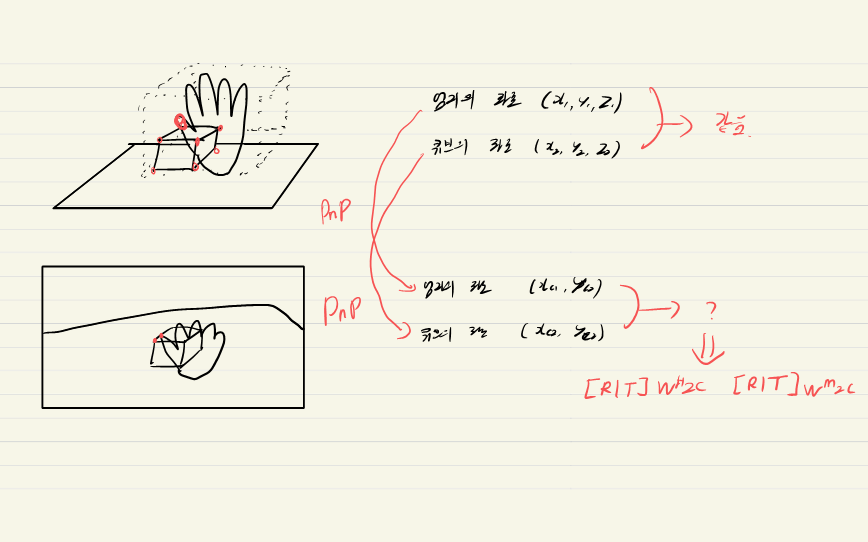 엄지의 좌표 (x₁, y₁, z₁)
같음.
큐브의 좌표 (x₂, y₂, z₂)
PnP
엄지의 좌표 (xc₁, yc₂)
PnP
?
큐브의 좌표 (xc₂, yc₂)
[R|T]w^H2c [R|T]w^m2c